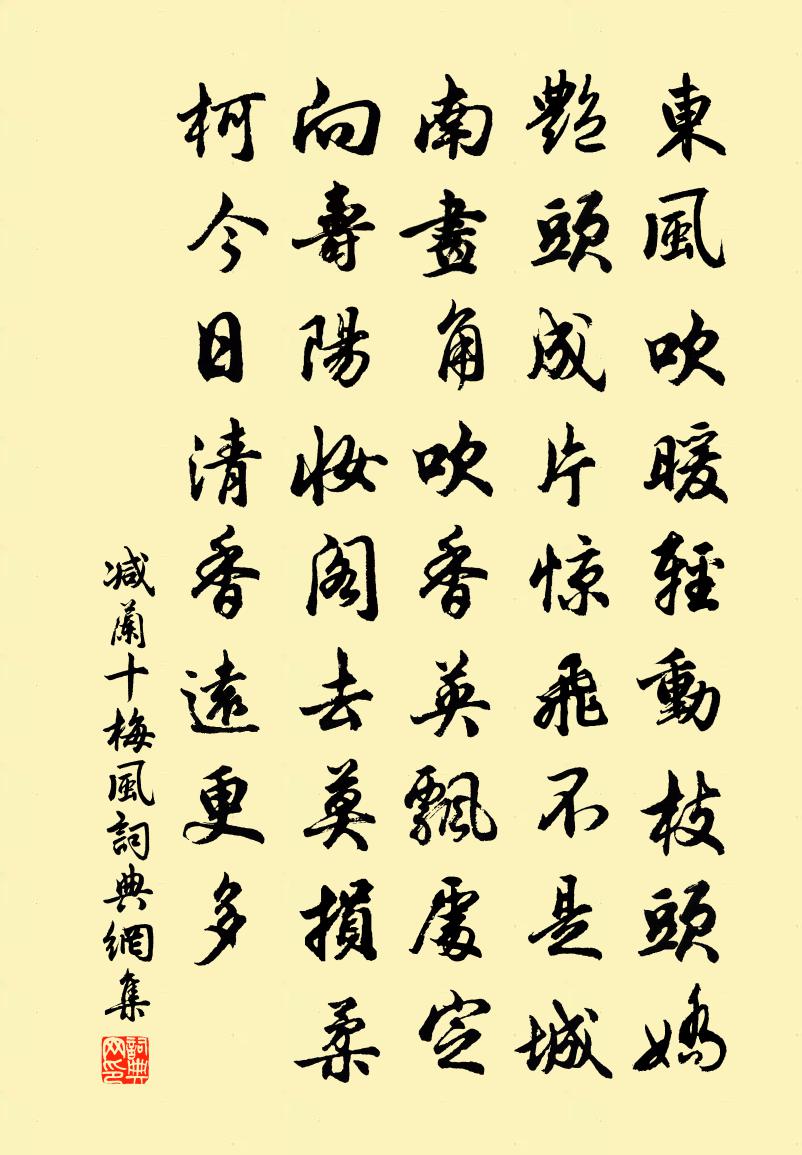 東風吹暖輕動枝頭嬌
艷頭成片惊飛不是城
南畫角吹香英飄處定
向壽陽妝阁去莫損柔
柯今日清香遠更多
减蘭十梅風詞典網集
詞典网印